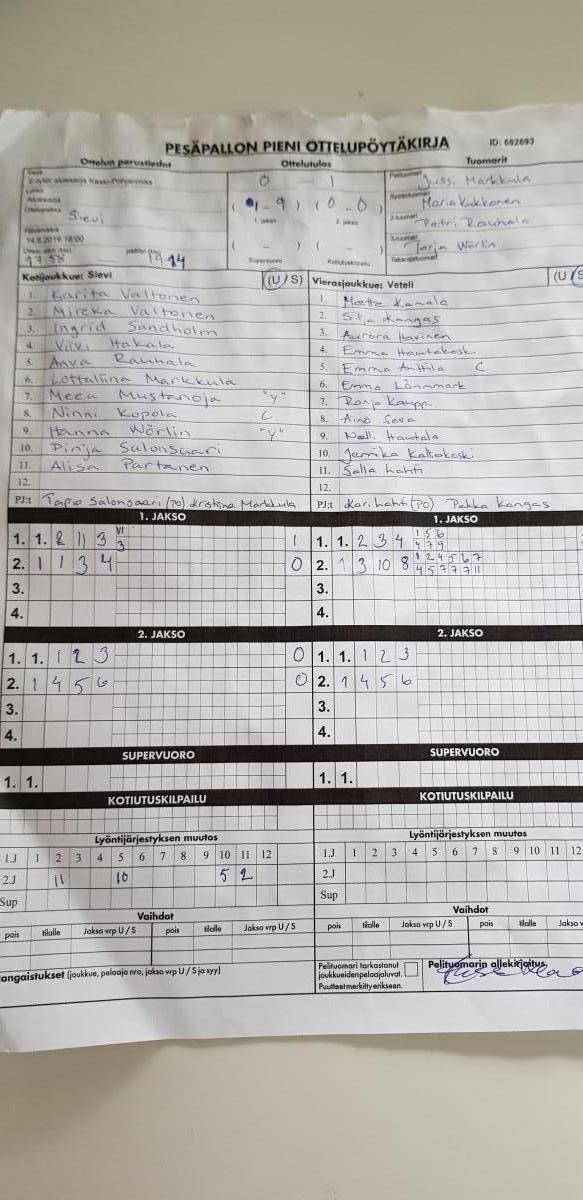 PESÄPALLON PIENI OTTELUPÖYTÄKIRJA ID: 682693
Ottelun perustiedot Ottelutulos Tuomarit
0 - 1 Jussi Markkula
( 1 - 9 ) ( 0 - 0 ) Maria Kukkonen
Sievi Petri Rauhala
1. jakso 2. jakso
14.8.2019 18:00 Tarja Wörlin
17.58 19.14 ( - ) ( - )
Supervuoro Kotiutuskilpailu Takarajatuomari
Kotijoukkue: Sievi (U / S) Vierasjoukkue: Veteli (U / S
1. Karita Valtonen
2. Mireka Valtonen
3. Ingrid Sandholm
4. Viivi Hakala
5. Anva Rauhala
6. Lottaliina Markkula
7. Meea Mustanoja "y"
8. Ninni Kopola C
9. Hanna Wörlin "y"
10. Pinja Salonsaari
11. Alisa Partanen
12.
PJ:t Tapio Salonsaari (PO) Kristina Markkula
1. Mette Kamala
2. Silja Kangas
3. Aurora Harinen
4. Emma Hautakoski
5. Emma Anttila C
6. Emma Lönnmark
7. Ronja Kauppi
8. Aino Seva
9. Nelli Hautala
10. Jemika Kalliokoski
11. Salla Lahti
12.
PJ:t Kari Lahti (PO) Pekka Kangas
1. JAKSO 1. JAKSO
1. 1. 2 11 3 VI 3 1 1. 1. 2 3 4 1 5 6 4 7 9
2. 1 1 3 4 0 2. 1 3 10 8 1 2 4 5 6 7 4 5 7 7 7 11
3. 3.
4. 4.
2. JAKSO 2. JAKSO
1. 1. 1 2 3 0 1. 1. 1 2 3
2. 1 4 5 6 0 2. 1 4 5 6
3. 3.
4. 4.
SUPERVUORO SUPERVUORO
1. 1. 1. 1.
KOTIUTUSKILPAILU KOTIUTUSKILPAILU
Lyöntijärjestyksen muutos Lyöntijärjestyksen muutos
1.J 1 2 3 4 5 6 7 8 9 10 11 12 1.J 1 2 3 4 5 6 7 8 9 10 11 12
2.J 11 10 5 2 2.J
Sup Sup
Vaihdot Vaihdot
pois tilalle Jakso vrp U / S pois tilalle Jakso vrp U / S pois tilalle Jakso vrp U / S pois tilalle Jakso v
angaistukset (joukkue, pelaaja nro, jakso vrp U / S ja syy)
Pelituomari tarkastanut
joukkueiden pelaajaluvat.
Puutteet merkitty erikseen.
Pelituomarin allekirjoitus